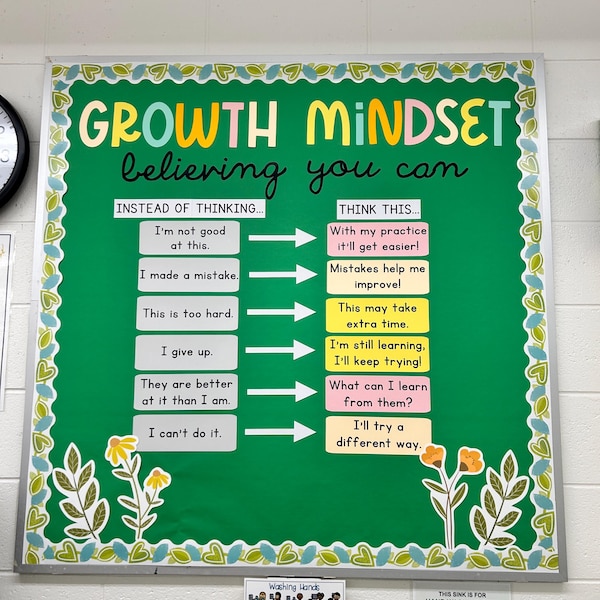 GROWTH MiNDSET
believing you can
INSTEAD OF THINKING...
THINK THIS...
I'm not good
at this.
With my practice
it'll get easier!
I made a mistake.
Mistakes help me
improve!
This is too hard.
This may take
extra time.
I give up.
I'm still learning,
I'll keep trying!
They are better
at it than I am.
What can I learn
from them?
I can't do it.
I'll try a
different way.
Washing Hands
THIS SINK IS FOR